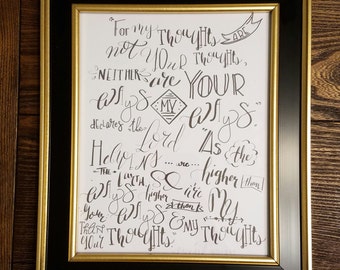 "For my Thoughts ARE
not your Thoughts,
NEITHER are YOUR
ways MY ways"
declares the Lord
"As {the}
Heavens ... are ... higher {than}
THE
SO are MY
ways higher {than}
your ways & MY THOUGHTS
THAN YOUR THOUGHTS."